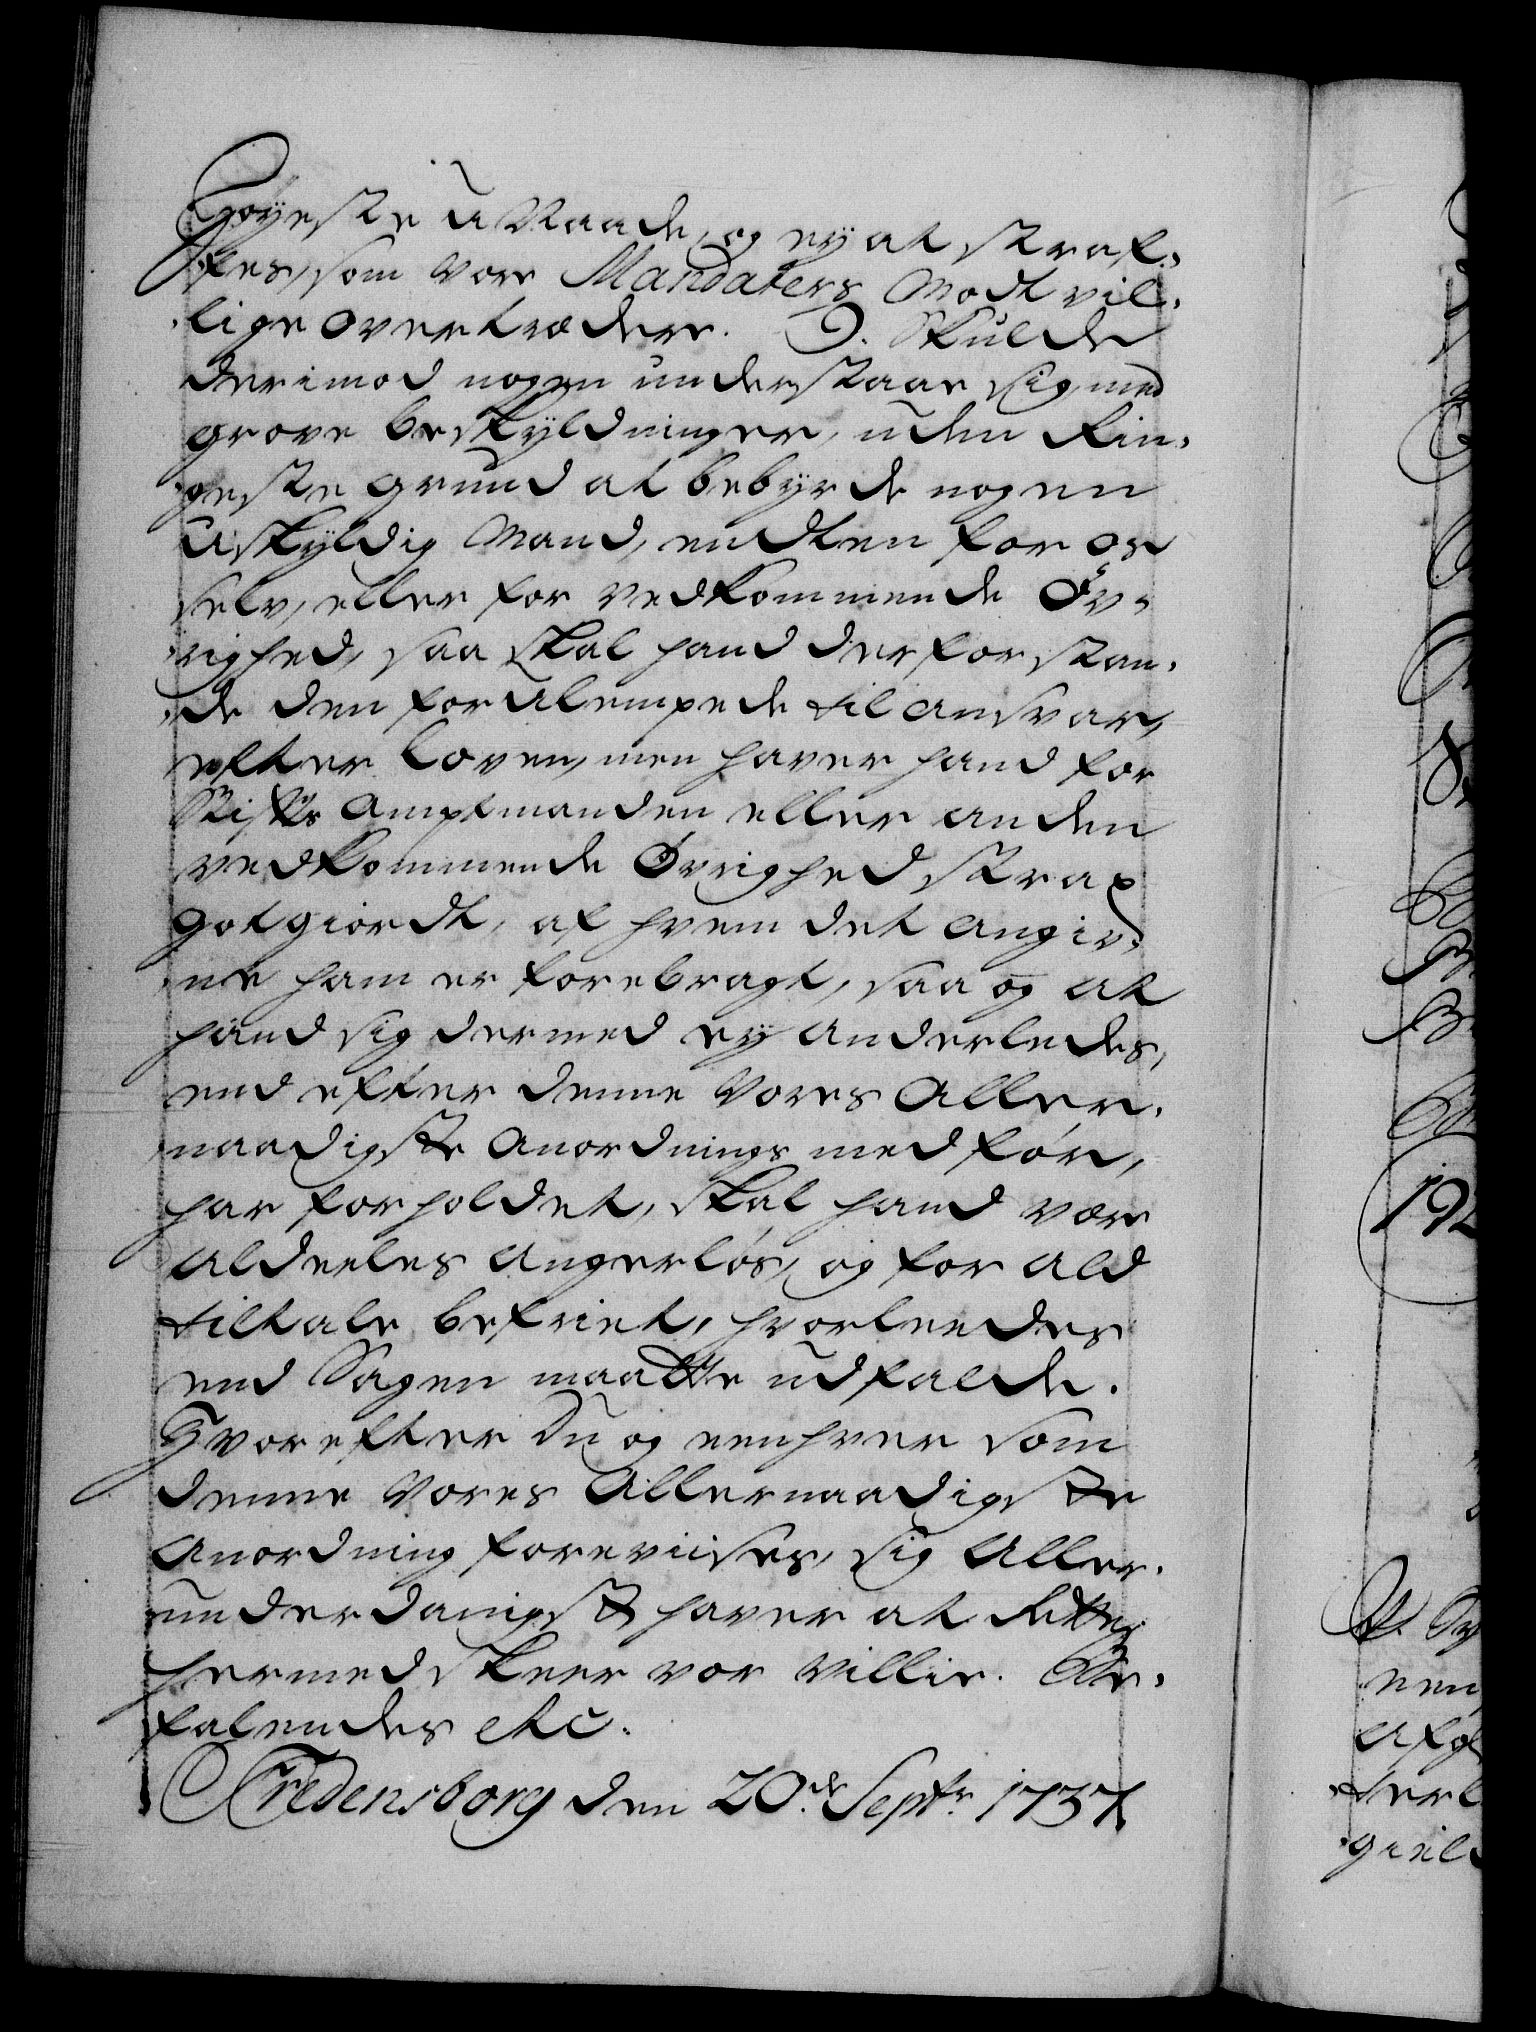 Høyeste Unaade, og ey at straf-
fes, som vore Mandaters Modtvil-
lige overtrædere. 9. Skulde
derimod nogen understaae sig, med
grove beskyldninger, uden Rin-
geste grund at bebyrde nogen
uskyldig Mand, endten for os
selv, eller for vedkommende Øv-
righed, saa skal hand derfor staa-
de den forulempede til ansvar,
efter Loven, men haver hand for
Stifts Amptmanden eller anden
vedkommende Øvrighed strax
gotgiordt, af hvem det angiv-
ne ham er forebragt, saa og at
hand sig dermed ey anderledes,
end efter denne Vores Aller-
naadigste Anordnings medfør,
har forholdet, skal hand være
aldeeles angerløs, og for ald
tiltale befriet, hvorleedes
end Sagen maatte udfalde.
Hvorefter Du og eenhver som
denne Vores Allernaadigste
Anordning foreviises, sig Aller-
underdanigst haver at Rette,
hermed skeer vor villie. Be-
falendes etc.
Fredensborg den 20.de Septr 1737
192